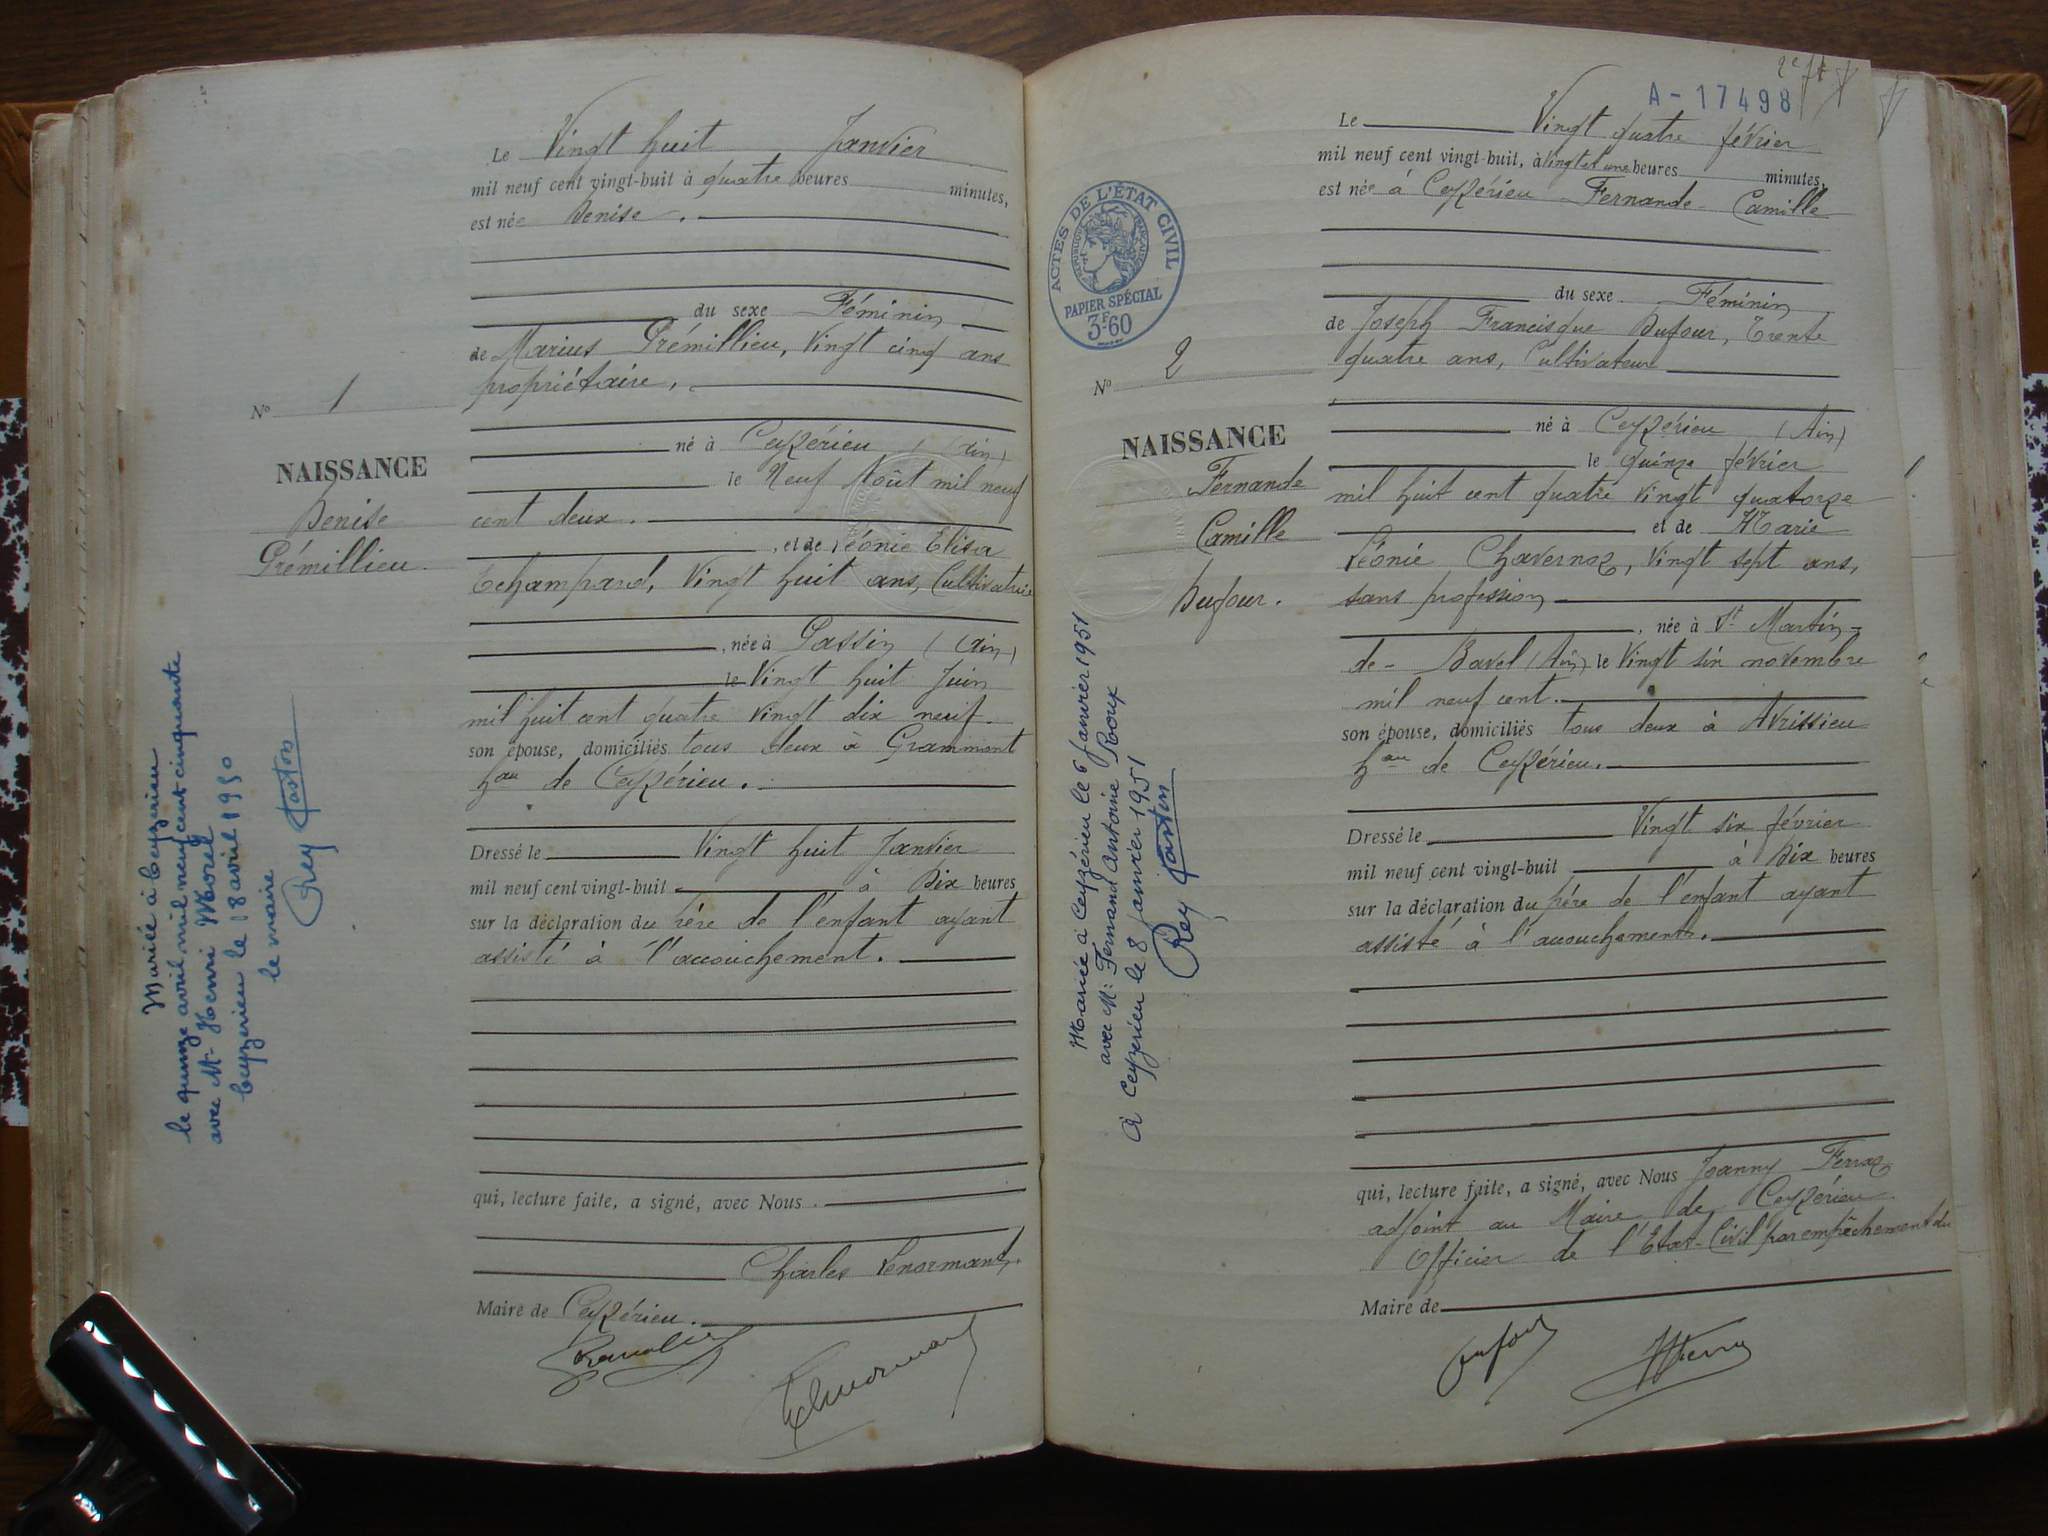 Le Vingt huit Janvier
mil neuf cent vingt-huit à quatre heures minutes,
est née Denise.
du sexe Féminin
de Marius Prémillieu, Vingt cinq ans
propriétaire,
né à Ceyzérieu (Ain)
le Neuf Août mil neuf
cent deux.
, et de Léonie Elisa
Echampard, Vingt huit ans, Cultivatrice
, née à Passin (Ain)
le Vingt huit Juin
mil huit cent quatre vingt dix neuf.
son épouse, domiciliés tous deux à Grammont
hau de Ceyzérieu.
Dressé le Vingt huit Janvier
mil neuf cent vingt-huit à Dix heures
sur la déclaration du père de l'enfant ayant
assisté à l'accouchement.
qui, lecture faite, a signé, avec Nous
Charles Lenormand,
Maire de Ceyzérieu.
Lenormand
No 1
NAISSANCE
Denise
Prémillieu.
Mariée à Ceyzerieu
le quinze avril mil neuf cent cinquante
avec Mr Henri Morel
Ceyzerieu le 18 avril 1950
le maire
Rey Gaston
A-17498
Le Vingt quatre février
mil neuf cent vingt-huit, à Vingt et une heures minutes,
est née à Ceyzérieu Fernande Camille
du sexe Féminin
de Joseph Francisque Dufour, Trente
quatre ans, Cultivateur
né à Ceyzérieu (Ain)
le quinze février
mil huit cent quatre vingt quatorze
et de Marie
Léonie Chavernoz, Vingt sept ans,
sans profession
, née à St Martin-
de-Bavel (Ain) le Vingt six novembre
mil neuf cent.
son épouse, domiciliés tous deux à Avrissieu
hau de Ceyzérieu.
Dressé le Vingt six février
mil neuf cent vingt-huit à Dix heures
sur la déclaration du père de l'enfant ayant
assisté à l'accouchement.
qui, lecture faite, a signé, avec Nous Joanny Ferraz
adjoint au Maire de Ceyzérieu
Officier de l'Etat-Civil par empêchement du
Maire de
Dufour
ACTES DE L'ÉTAT CIVIL
RÉPUBLIQUE FRANÇAISE
PAPIER SPÉCIAL
3F.60
No 2
NAISSANCE
Fernande
Camille
Dufour.
Mariée à Ceyzérieu le 6 janvier 1951
avec Mr Fernand Antoine Roux
A Ceyzerieu le 8 janvier 1951
Rey Gaston